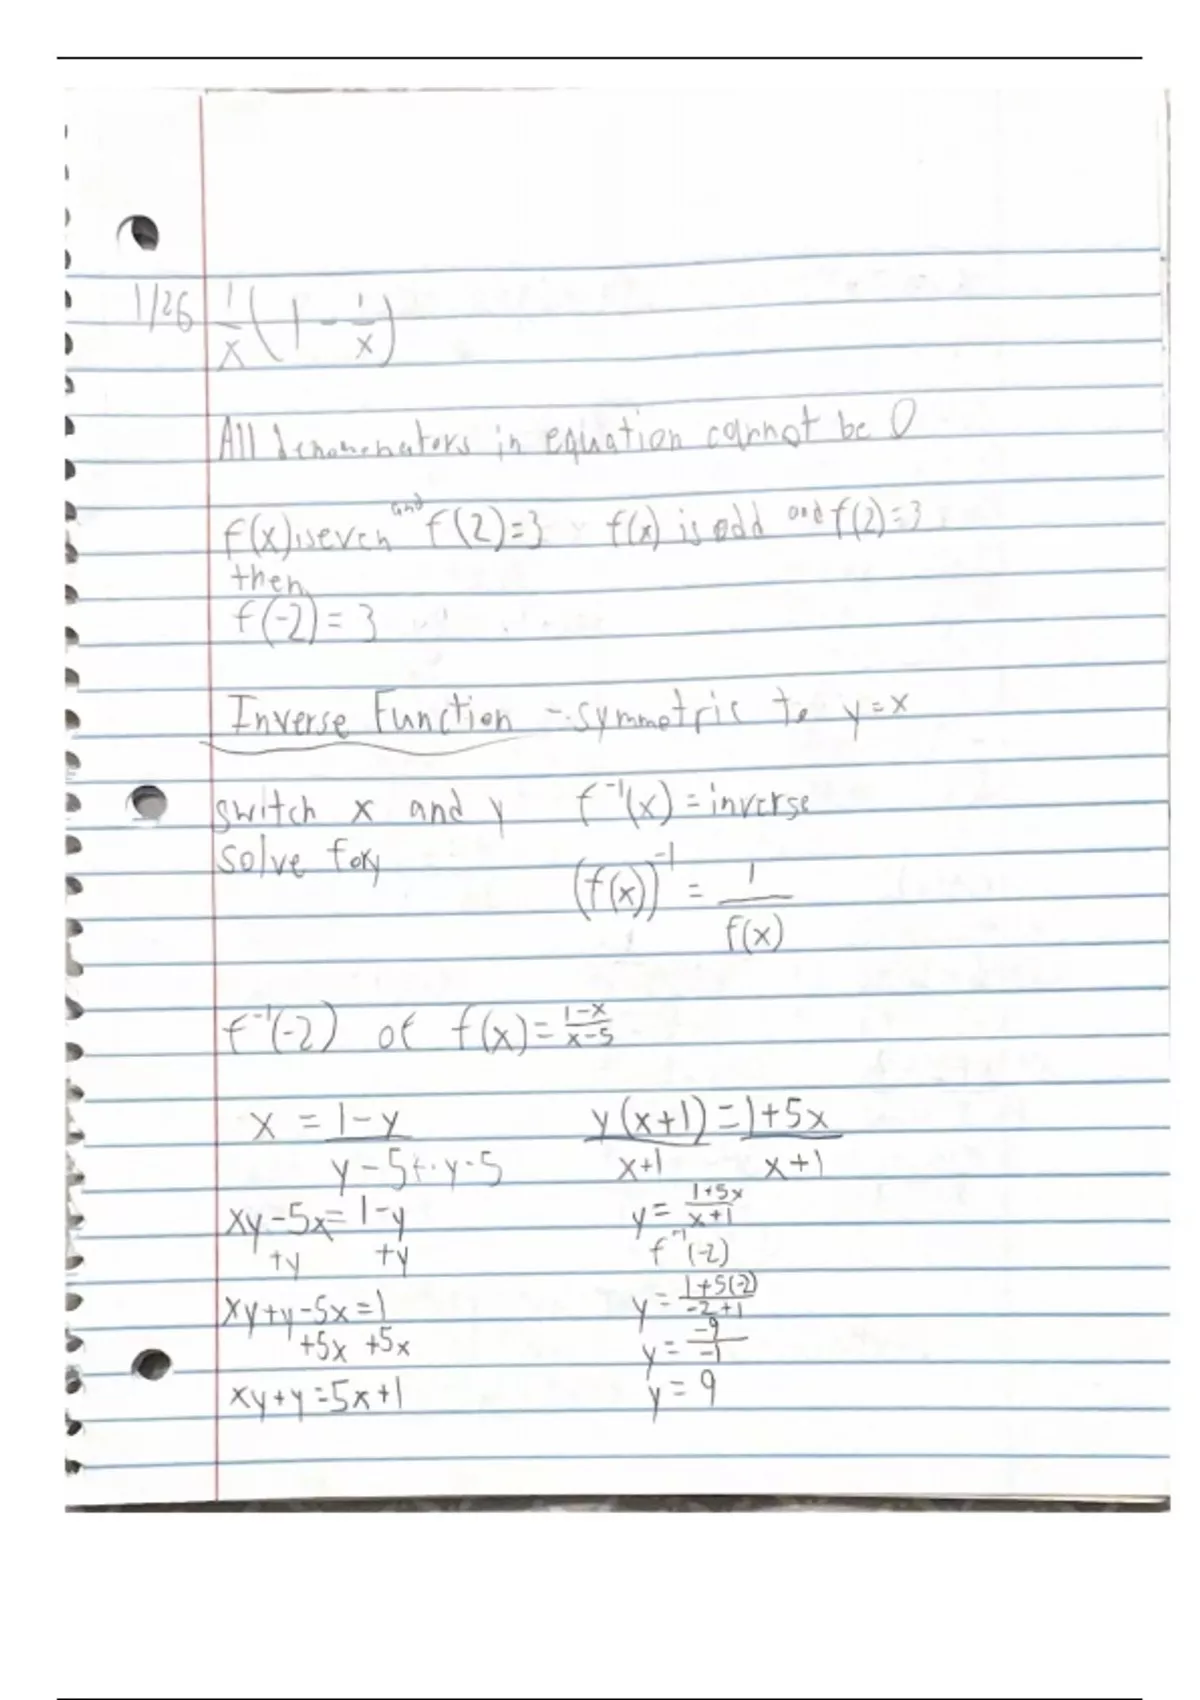 1/26 1/x (1 - 1/x)
All denomenators in equation cannot be 0
f(x) is even and f(2)=3 f(x) is odd and f(2)=3
then
f(-2)=3
Inverse Function - symmetric to y=x
switch x and y f⁻¹(x) = inverse
solve for y (f(x))⁻¹ = 1/f(x)
f⁻¹(-2) of f(x) = (1-x)/(x-5)
x = (1-y)/(y-5) · y-5
xy-5x=1-y
+y +y
xy+y-5x=1
+5x +5x
xy+y=5x+1
y(x+1)/(x+1) = (1+5x)/(x+1)
y = (1+5x)/(x+1)
f⁻¹(-2)
y = (1+5(-2))/(-2+1)
y = -9/-1
y = 9